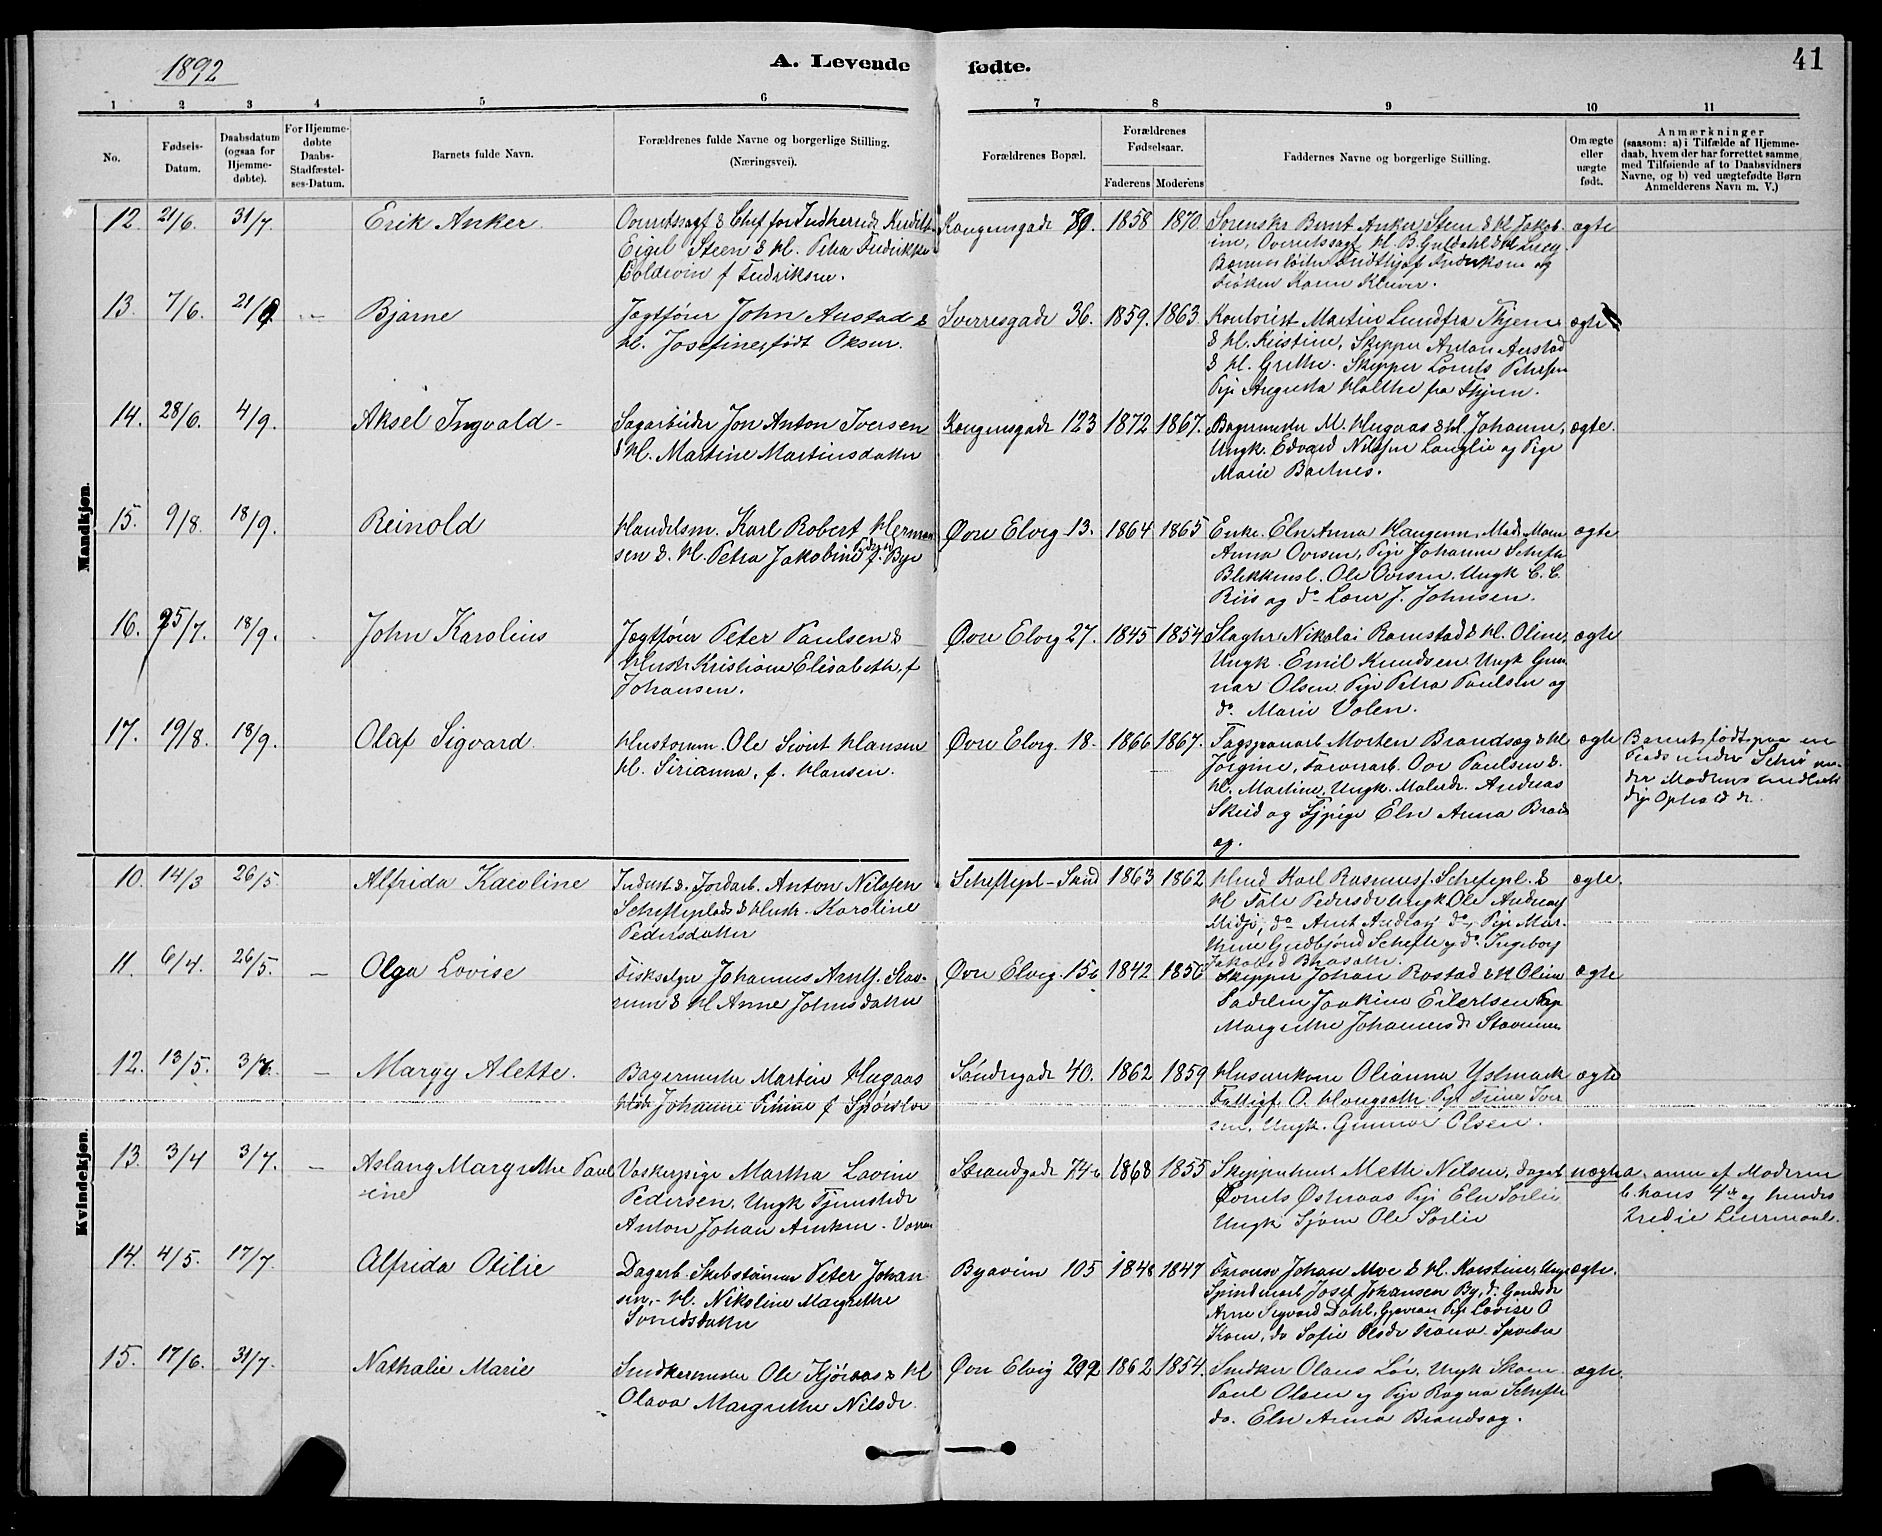 1892
A. Levende fødte.
41
1 2 3 4 5 6 7 8 9 10 11
No.
Fødsels-Datum.
Daabsdatum (ogsaa for Hjemme-døbte).
For Hjemme-døbte Daabs-Stadfæstel-ses-Datum.
Barnets fulde Navn.
Forældrenes fulde Navne og borgerlige Stilling.
(Næringsvei).
Forældrenes Bopæl.
Forældrenes Fødselsaar.
Faderens Moderens
Faddernes Navne og borgerlige Stilling.
Om ægte eller uægte født.
Anmærkninger
(saasom: a) i Tilfælde af Hjemme-
daab, hvem der har forrettet samme,
med Tilføiende af to Daabsvidners
Navne, og b) ved uægtefødte Børn
Anmelderens Navn m. V.)
Mandkjøn.
12. 21/6. 31/7. Erik Anker Overretssagf & Chef for Indherreds
Eigil Steen & H. Petra Fredrikke
Coldevin f Fredriksen.
Kongensgade 89. 1858 1870. Sorenskr Bernt Anker Steen & H. Jakob-
ine, Overretssagf H. B. Guldahl & H.
Fridthjof Fredriksen og
Frøken Karen Klüver.
ægte
13. 7/6. 21/ Bjarne Jægtfører John Austad &
H. Josefine, født Oksen.
Sverresgade 36. 1859. 1863. Kontorist Martin Lund fra Thjem
& H. Kristine, Skipper Anton Austad
& H. Grethe. Skipper Lorents Petersen
Pige Augusta Holthe fra Thjem.
ægte
14. 28/6. 4/9. Aksel Ingvald Sagarbeider Jon Anton Iversen
& H. Martine Martinsdatter
Kongensgade 123 1872 1867. Bagermester M. Hugaas & H. Johanne,
Ungk. Edvard Nilssen Langlie og Pige
Marie Bartnes.
ægte.
15. 9/8. 18/9. Reinold Handelsm. Karl Robert Herman
sen & H. Petra Jakobine f. Bye
Øvre Elveg 13. 1864 1865 Enke Eln Anna Haugerm, Mads Moen
Anna Ovesen, Pige Johanne Schefte
Blikkensl. Ole Ovesen. Ungk C. C.
Riis og do Lærer J. Johnsen.
ægte
16. 25/7. 18/9. John Karolius Jægtfører Peter Paulsen &
Hustr Kristiane Elisabeth, f
Johansen.
Øvre Elveg 27. 1845 1854 Slagter Nikolai Ramstad & H. Oline,
Ungk. Emil Knudsen. Ungk Gun
nar Olsen. Pige Petra Paulsen og
do. Marie Volen.
ægte
17. 19/8. 18/9. Olaf Sigvard. Ole Sivert Hansen
H. Sirianna, f. Hansen.
Øvre Elveg. 18. 1866 1867. Morten Brandsæg & H
Jørgine, Farverarb. Ove Paulsen &
H. Martine, Ungk. Malerdr. Andreas
Skeid og Tjpige Eln Anna Brands
æg.
ægte
Barnet født paa en
Plads under
Modrens
Ophold dr.
Kvindekjøn.
10. 14/3 26/5. Alfrida Karoline Indest & Jordarb. Anton Nilssen
Schefteplads & Hustr. Karoline
Pedersdatter
Scheftepl - Sund 1863 1862 Karl Rasmuss. Scheftepl. &
H Pedersdr Ungk Ole Andreas
Midjo, do Arnt Andreas do, Pige Mar-
thine Gudbjørd Schefte og do. Ingeborg
Jakobsd
ægte.
11. 6/4. 26/5. Olga Lovise Fisksælger Johannes Arntj. Stav-
rum & H Anne Johnsdatter
Øvre Elveg. 15b 1842 1856 Skipper Johan Rostad & H Oline
Joakim Eilertsen Pige
Margrethe Johannesdr Stavrum
ægte
12. 13/5. 3/ Margy Alette. Bagermester Martin Hugaas
Hstr Johanne Petrine f
Søndregade 40. 1862 1859 Husmkone Olianna
Fattigf O. Pige Trine Iver
sen, Ungk. Gunnar Olsen.
ægte
13. 3/4 3/7. Aslaug Margrethe Paul
ine
Vaskerpige Martha Lovine
Pedersen. Ungk Tjenestedr
Anton Johan
Strandgade 74 1868 1855 Skipperhustr Mette Nilsen, dagarb
Lorents Østeraas Pige Eln Sørlie
Ungk Sjøm Ole Sørlie
uægte
a. anm af Moderen
b. hans 4de og hendes
tredie Leiermaal.
14. 4/5. 17/7. Alfrida Otilie Dagarb. Skibstømmer Peter Johan
sen, - H. Nikoline Margrethe
Svendsdatter
Byaveien 105 1848 1847 Johan Moe & H. Karstine, Ungk
Josef Johansen By, do. Gaardsdr
Arne Sigvard Dahl, Pige Lovise O
do Sofie Olsdr
ægte.
15. 17/6. 31/7. Nathalie Marie Snedkermester Ole Kjøraas & H
Olava Margrethe Nilsdr.
Øvre Elveg 292 1862 1854. Snedker Olaus Lø, Ungk Skom
Paul Olsen og Pige Ragna Schefte
do. Eln Anna Brandsæg.
ægte.